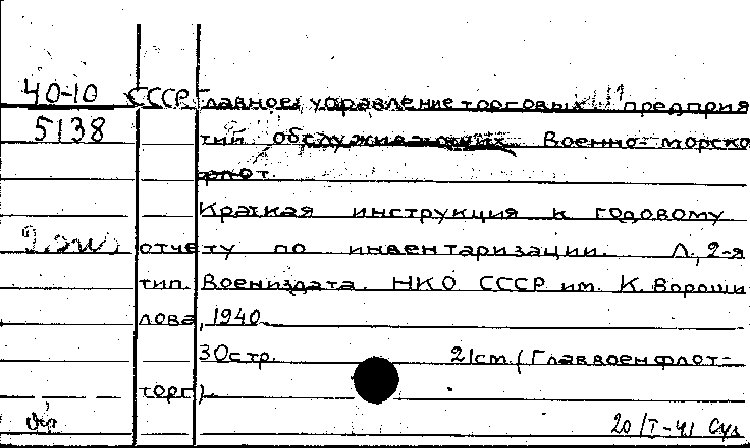 40-10 СССР Главное управление торговых предприя
5138 тий обслуживающих Военно-морско
флот.
Краткая инструкция к годовому
отчету по инвентаризации. Л., 2-я
тип. Воениздата. НКО СССР им. К. Вороши
лова, 1940.
30 стр. 21 см. (Главвоенфлот-
торг).
20/I-41